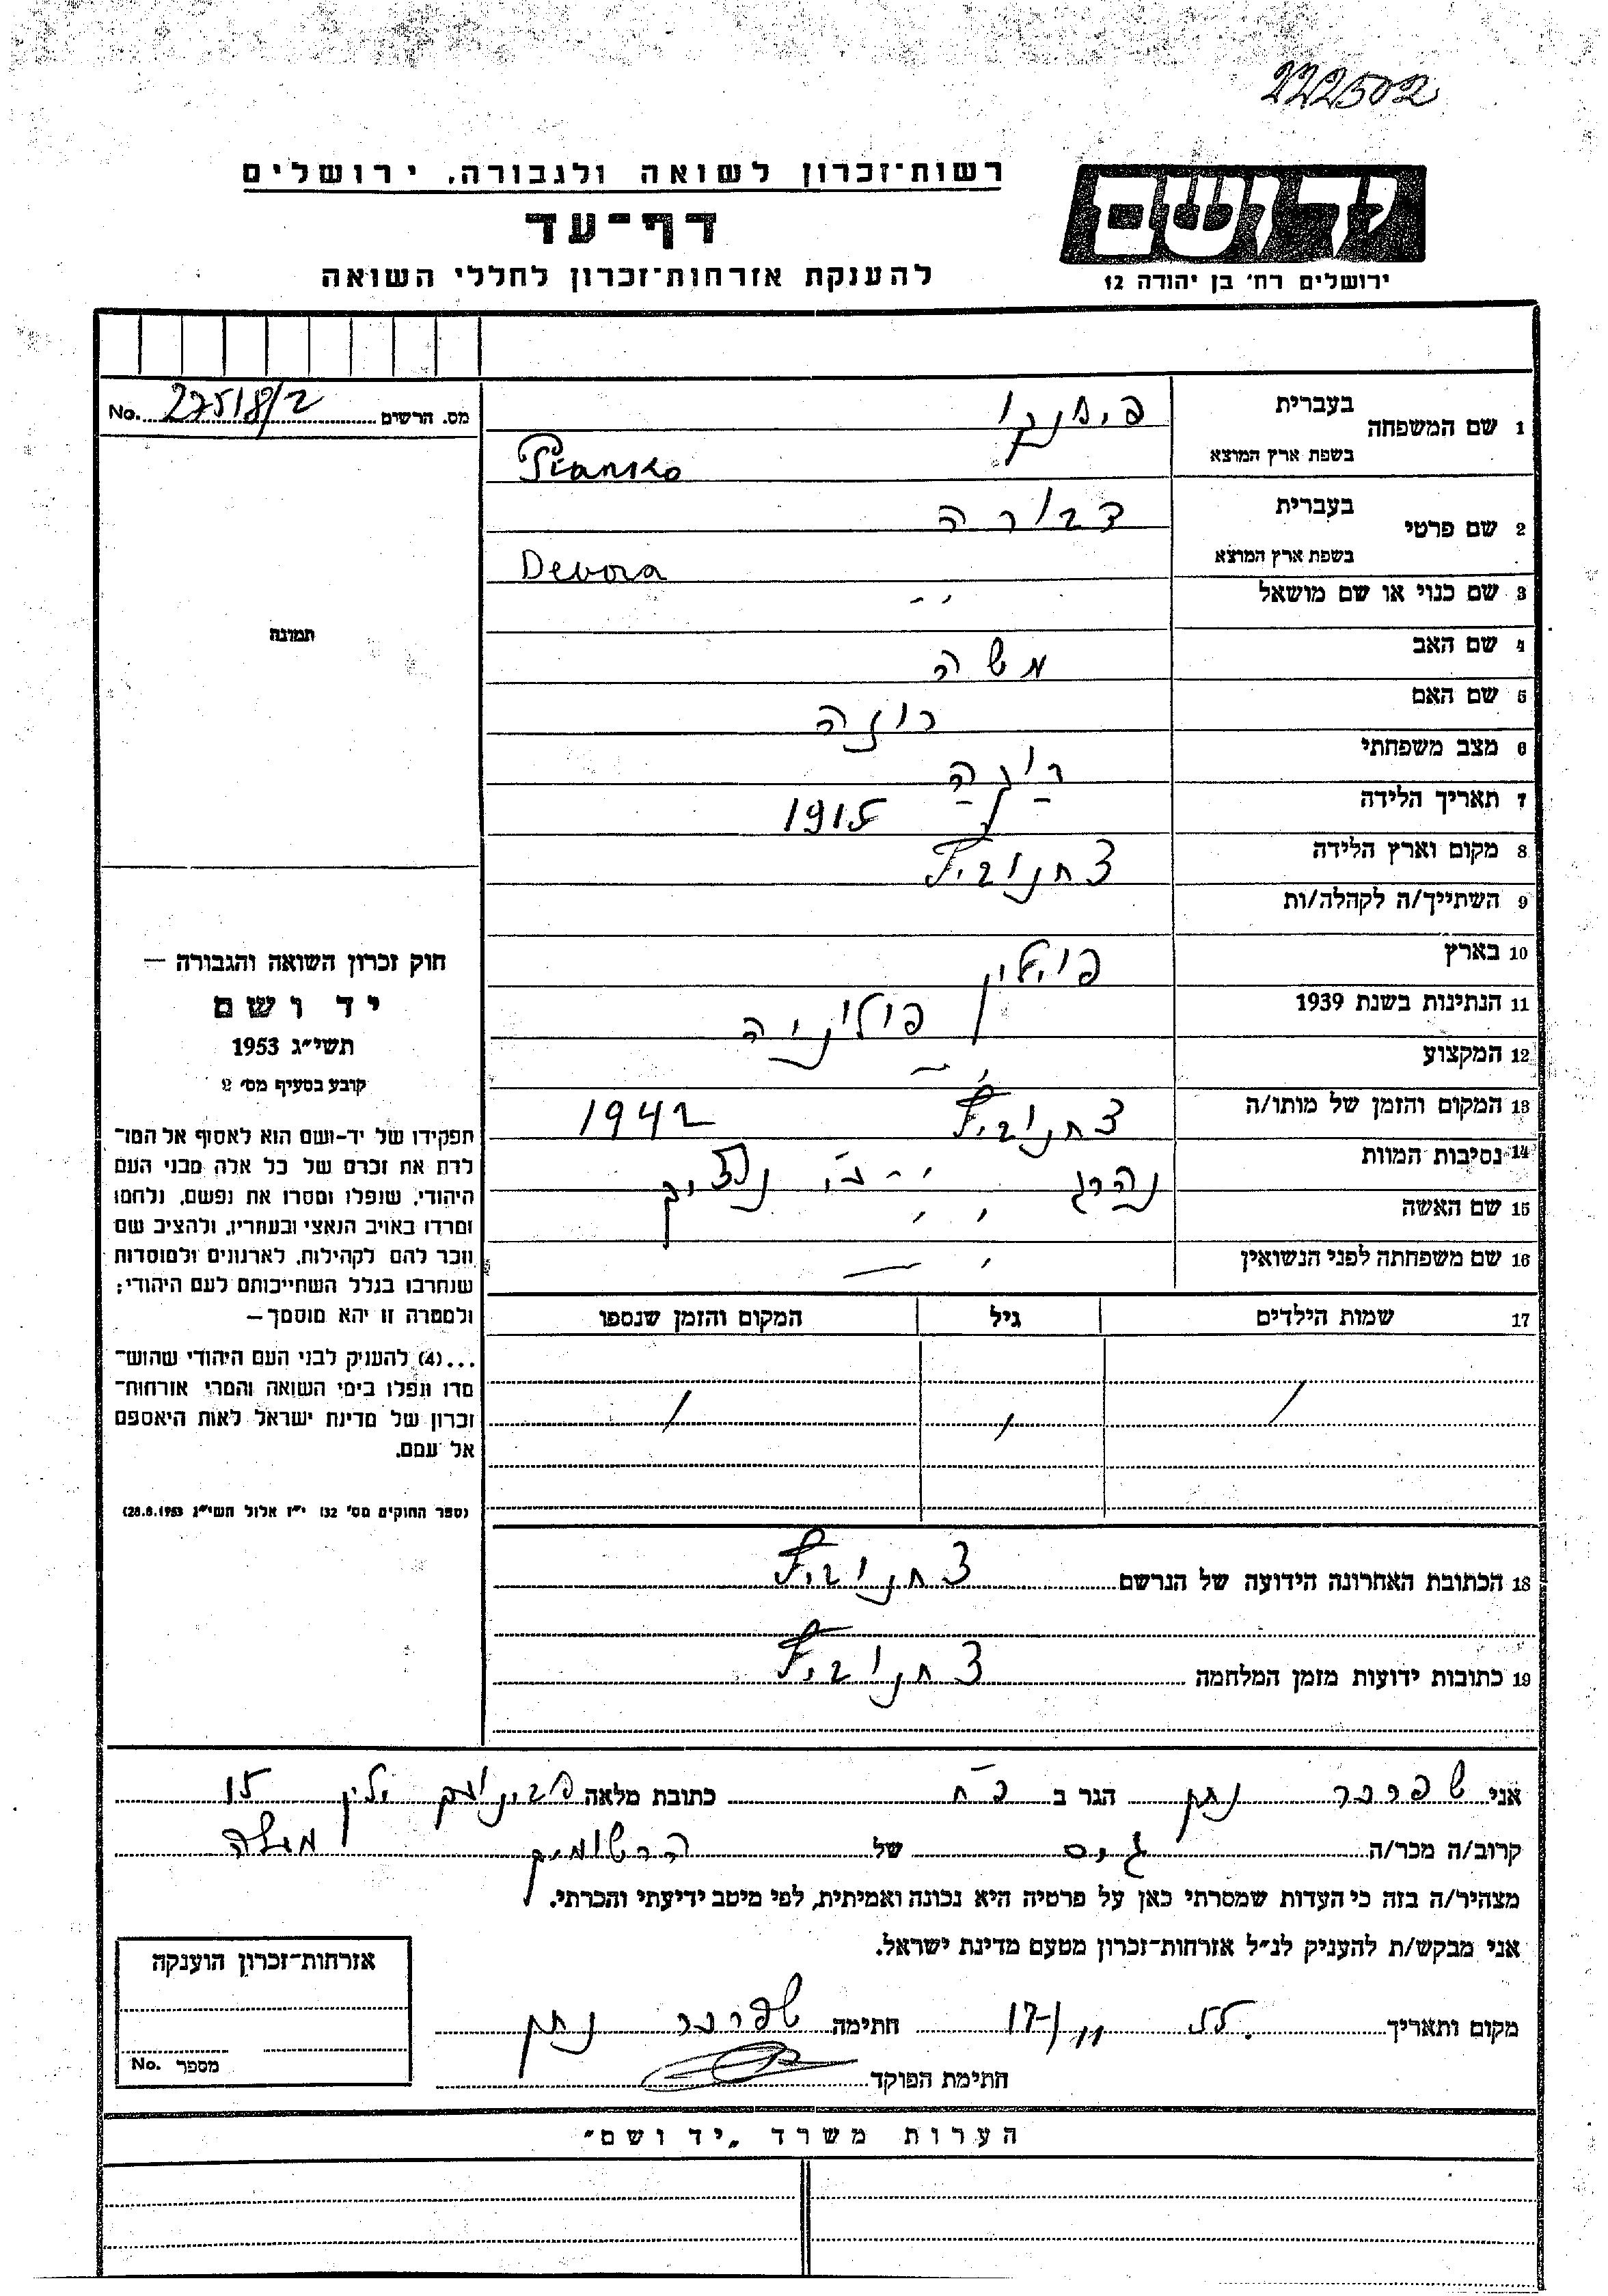 222502
רשות־זכרון לשואה ולגבורה. ירושלים
דף־עד
להענקת אזרחות־זכרון לחללי השואה
יד ושם
ירושלים רח' בן יהודה 12
מס. הרשים No. 22518/2
1 שם המשפחה
בעברית
בשפת ארץ המוצא
2 שם פרטי
בעברית דבורה
בשפת ארץ המוצא Devora
3 שם כנוי או שם מושאל
4 שם האב משה
5 שם האם רוזה
6 מצב משפחתי
7 תאריך הלידה 1915
8 מקום וארץ הלידה צחנוביץ
9 השתייך/ה לקהלה/ות
10 בארץ פולין
11 הנתינות בשנת 1939 פולניה
12 המקצוע
13 המקום והזמן של מותו/ה צחנוביץ 1942
14 נסיבות המוות
15 שם האשה
16 שם משפחתה לפני הנשואין
17 שמות הילדים גיל המקום והזמן שנספו
18 הכתובת האחרונה הידועה של הנרשם צחנוביץ
19 כתובות ידועות מזמן המלחמה צחנוביץ
תמונה
חוק זכרון השואה והגבורה —
יד ושם
תשי״ג 1953
קובע בסעיף מס' 2
תפקידו של יד-ושם הוא לאסוף אל המו־
לדת את זכרם של כל אלה מבני העם
היהודי, שנפלו ומסרו את נפשם, נלחמו
ומרדו באויב הנאצי ובעוזריו, ולהציב שם
וזכר להם לקהילות, לארגונים ולמוסדות
שנחרבו בגלל השתייכותם לעם היהודי;
ולמטרה זו יהא מוסמך —
...(4) להעניק לבני העם היהודי שהוש־
מדו ונפלו בימי השואה והמרי אזרחות־
זכרון של מדינת ישראל לאות היאספם
אל עמם.
(ספר החוקים מס' 132 י״ז אלול תשי״ג 28.8.1953)
אני נתן הגר ב כתובת מלאה 15
קרוב/ה מכר/ה של
מצהיר/ה בזה כי העדות שמסרתי כאן על פרטיה היא נכונה ואמיתית, לפי מיטב ידיעתי והכרתי.
אני מבקש/ת להעניק לנ״ל אזרחות־זכרון מטעם מדינת ישראל.
מקום ותאריך חתימה נתן
חתימת הפוקד
אזרחות־זכרון הוענקה
מספר No.
הערות משרד „יד ושם״